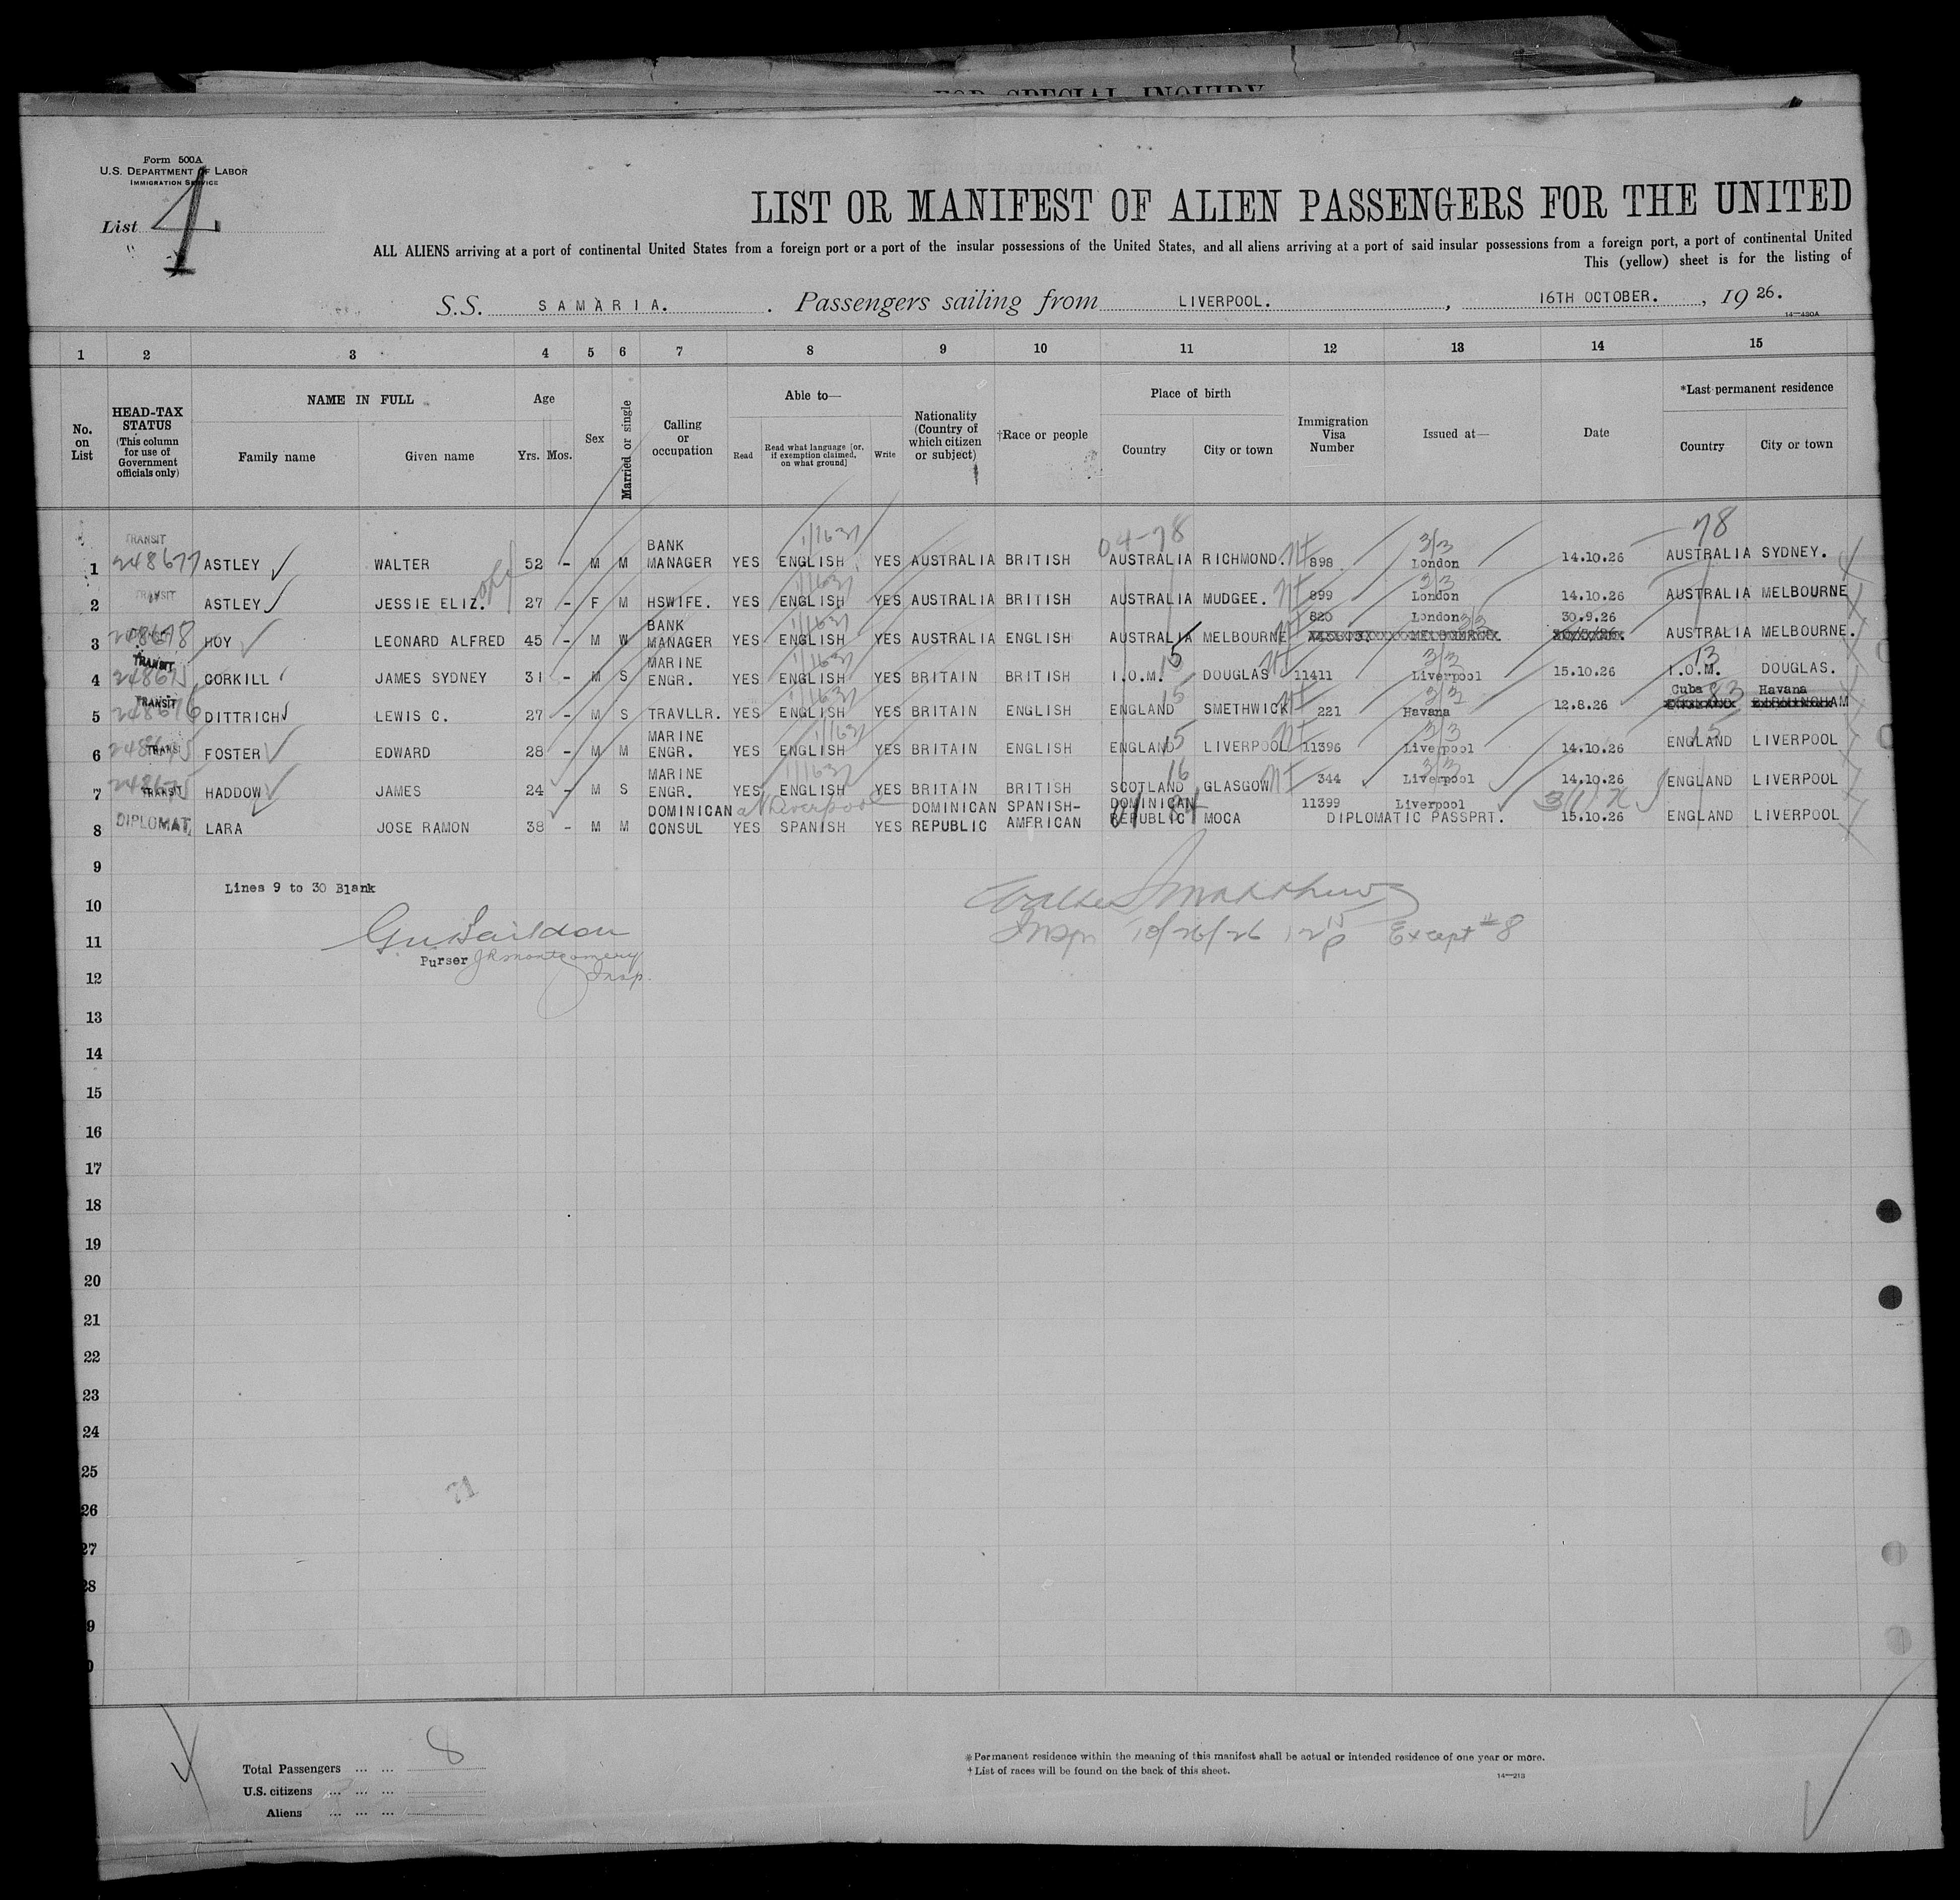 FOR SPECIAL INQUIRY
Form 500A
U.S. DEPARTMENT OF LABOR
IMMIGRATION SERVICE
List 4
LIST OR MANIFEST OF ALIEN PASSENGERS FOR THE UNITED
ALL ALIENS arriving at a port of continental United States from a foreign port or a port of the insular possessions of the United States, and all aliens arriving at a port of said insular possessions from a foreign port, a port of continental United
This (yellow) sheet is for the listing of
S.S. SAMARIA. Passengers sailing from LIVERPOOL. , 16TH OCTOBER. , 19 26.
14—480A
1 2 3 4 5 6 7 8 9 10 11 12 13 14 15
No. on List
HEAD-TAX STATUS (This column for use of Government officials only)
NAME IN FULL
Family name Given name
Age
Yrs. Mos.
Sex
Married or single
Calling or occupation
Able to—
Read Read what language [or, if exemption claimed, on what ground] Write
Nationality (Country of which citizen or subject)
†Race or people
Place of birth
Country City or town
Immigration Visa Number
Issued at—
Date
*Last permanent residence
Country City or town
1 TRANSIT 248677 ASTLEY WALTER 52 - M M BANK MANAGER YES ENGLISH YES AUSTRALIA BRITISH 04-78 AUSTRALIA RICHMOND. 898 3/3 London 14.10.26 78 AUSTRALIA SYDNEY.
2 TRANSIT ASTLEY JESSIE ELIZ. 27 - F M HSWIFE. YES ENGLISH YES AUSTRALIA BRITISH AUSTRALIA MUDGEE. 899 3/3 London 14.10.26 AUSTRALIA MELBOURNE
3 248678 HOY LEONARD ALFRED 45 - M W BANK MANAGER YES ENGLISH YES AUSTRALIA ENGLISH AUSTRALIA MELBOURNE 820 London 3/3 30.9.26 AUSTRALIA MELBOURNE.
4 TRANSIT 248675 CORKILL JAMES SYDNEY 31 - M S MARINE ENGR. YES ENGLISH YES BRITAIN BRITISH I.O.M. 15 DOUGLAS 11411 3/3 Liverpool 15.10.26 13 I.O.M. DOUGLAS.
5 TRANSIT 248676 DITTRICH LEWIS C. 27 - M S TRAVLLR. YES ENGLISH YES BRITAIN ENGLISH 15 ENGLAND SMETHWICK 221 3/3 Havana 12.8.26 Cuba 83 Havana
6 248675 TRANSI FOSTER EDWARD 28 - M M MARINE ENGR. YES ENGLISH YES BRITAIN ENGLISH ENGLAND 15 LIVERPOOL 11396 3/3 Liverpool 14.10.26 15 ENGLAND LIVERPOOL
7 248675 TRANSIT HADDOW JAMES 24 - M S MARINE ENGR. YES ENGLISH YES BRITAIN BRITISH 16 SCOTLAND GLASGOW 344 3/3 Liverpool 14.10.26 ENGLAND LIVERPOOL
8 DIPLOMAT. LARA JOSE RAMON 38 - M M DOMINICAN CONSUL at Liverpool YES SPANISH YES DOMINICAN REPUBLIC SPANISH-AMERICAN DOMINICAN REPUBLIC MOCA 11399 Liverpool DIPLOMATIC PASSPRT. 3(1) 15.10.26 ENGLAND LIVERPOOL
9
Lines 9 to 30 Blank
10
11
Purser J R Montgomery
Insp.
Walter J Matthews
Insp 10/26/26 Except #8
12
13
14
15
16
17
18
19
20
21
22
23
24
25
26
27
28
9
0
Total Passengers ... ... 8
U.S. citizens ... ... ...
Aliens ... ... ...
*Permanent residence within the meaning of this manifest shall be actual or intended residence of one year or more.
†List of races will be found on the back of this sheet.
14—213